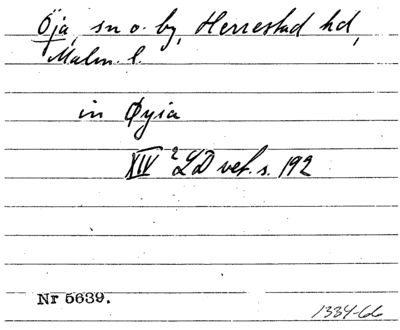 Öja, sn o. by, Herrestad hd,
Malm. l.
in Øyia
XIV 2 LD vet. s. 192
Nr 5639.
1334-66